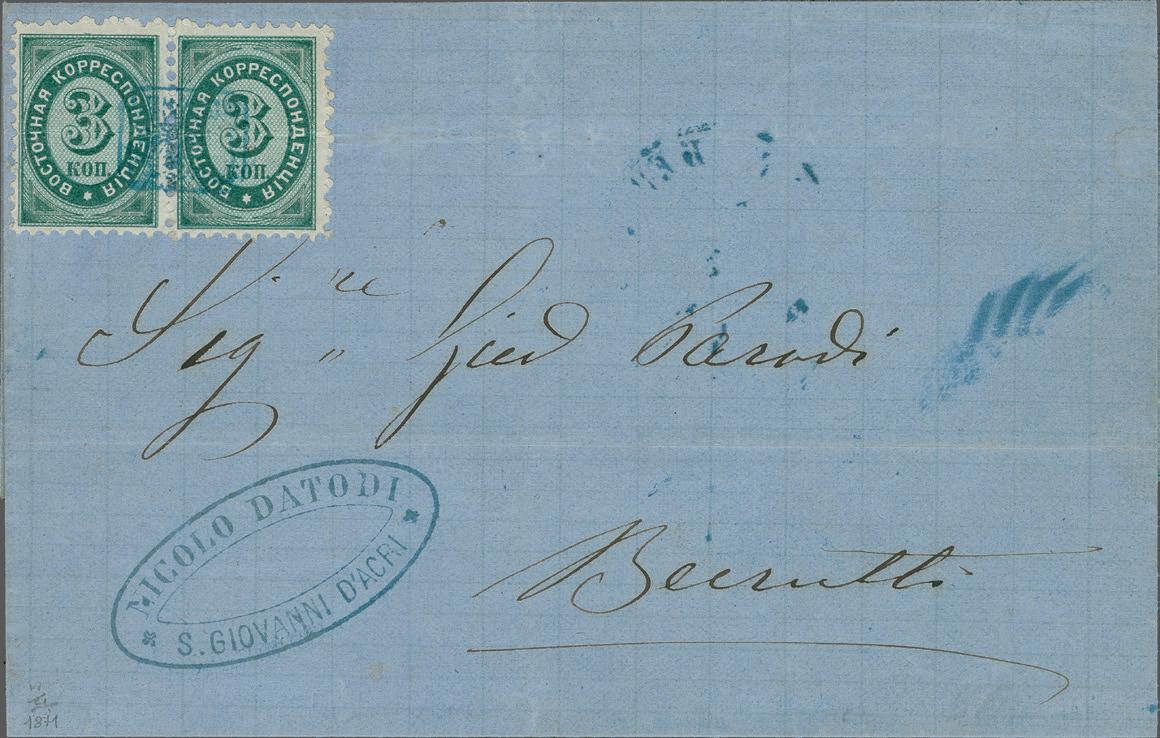 ВОСТОЧНАЯ КОРРЕСПОНДЕНЦІЯ
3
КОП.
ВОСТОЧНАЯ КОРРЕСПОНДЕНЦІЯ
3
КОП.
Sig re Gied Parodi
NICOLO DATODI
S. GIOVANNI D'ACRI
Beirutti
1871